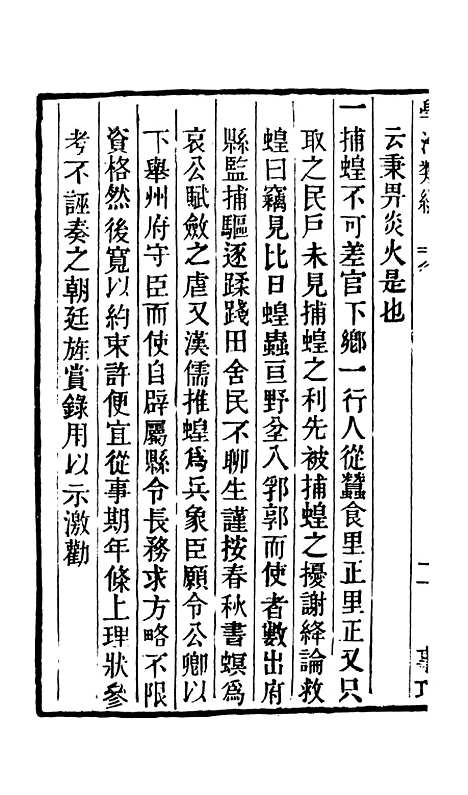 云秉畀炎火是也
一捕蝗不可差官下鄉一行人從蠶食里正里正又只
取之民戶未見捕蝗之利先被捕蝗之擾謝絳論救
蝗曰竊見比日蝗蟲亘野坌入郛郭而使者數出府
縣監捕驅逐蹂踐田舍民不聊生謹按春秋書螟爲
哀公賦斂之虐又漢儒推蝗爲兵象臣願令公卿以
下舉州府守臣而使自辟屬縣令長務求方略不限
資格然後寬以約束許便宜從事期年條上理狀參
考不誣奏之朝廷旌賞錄用以示激勸